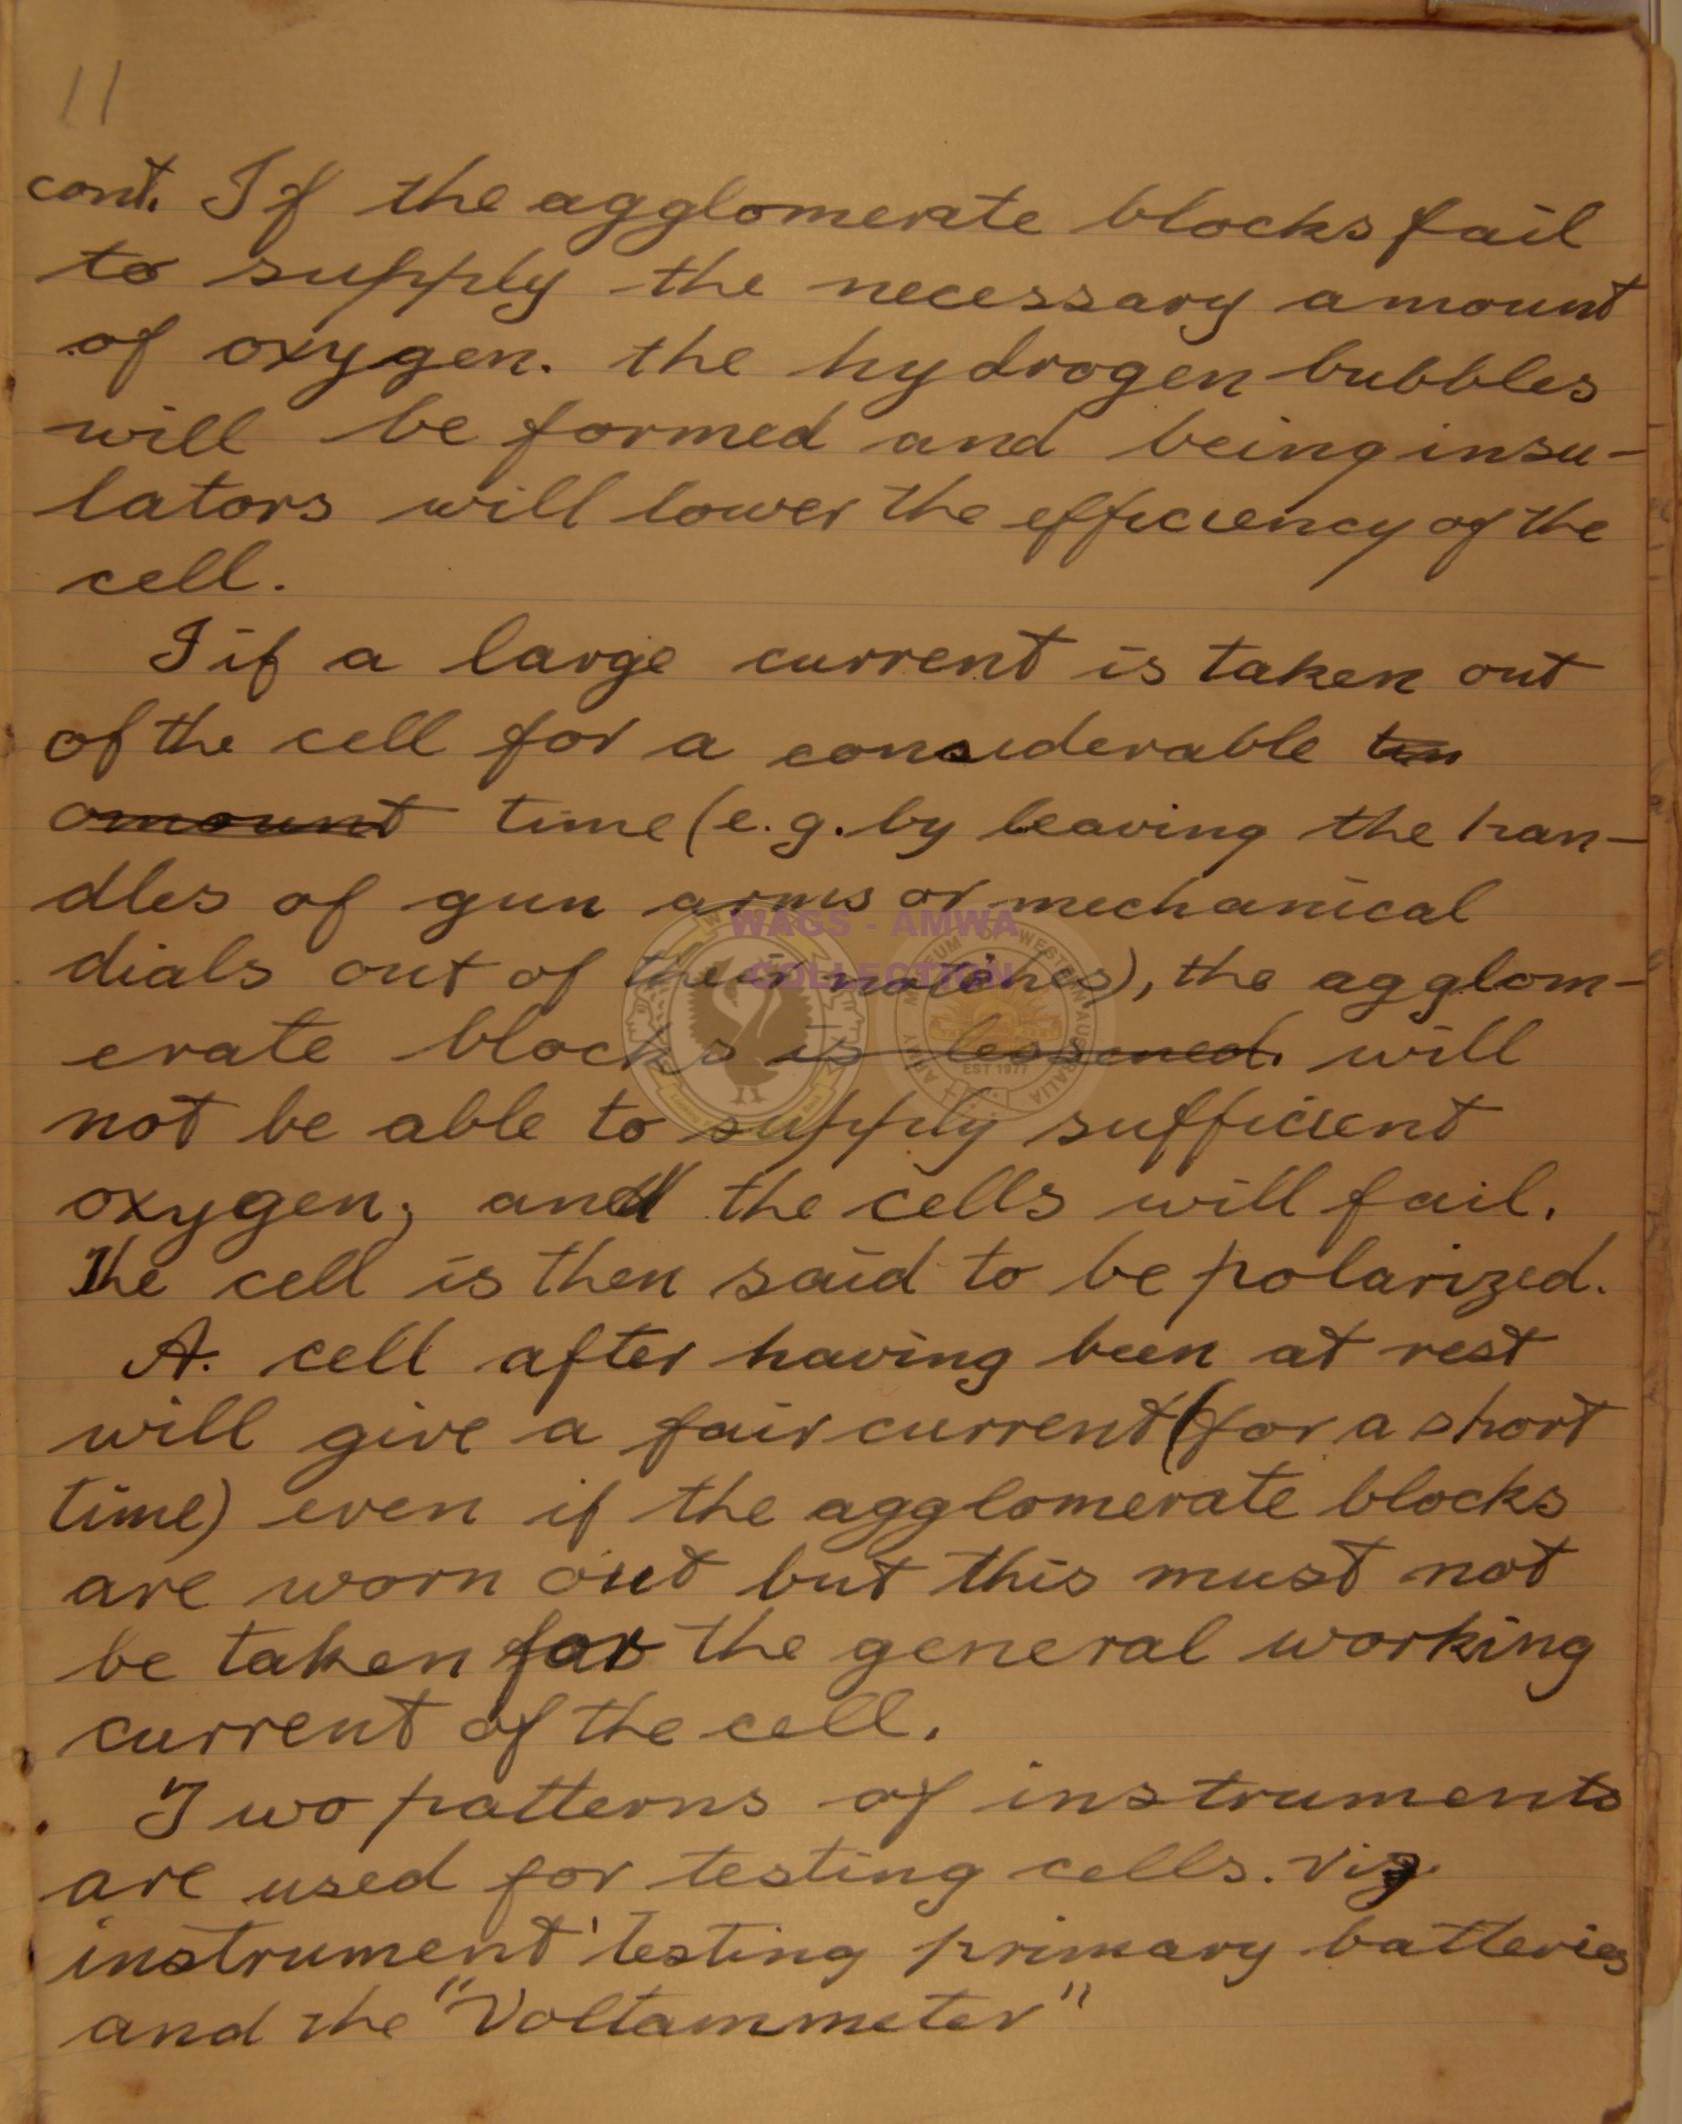 11
cont. If the agglomerate blocks fail
to supply the necessary amount
of oxygen. the hydrogen bubbles
will be formed and being insu-
lators will lower the efficiency of the
cell.
I if a large current is taken out
of the cell for a considerable tim
amount time (e.g. by leaving the han-
dles of gun arms or mechanical
dials out of their notches), the agglom-
erate blocks is lessened. will
not be able to supply sufficient
oxygen; and the cells will fail.
The cell is then said to be polarized.
A. cell after having been at rest
will give a fair current (for a short
time) even if the agglomerate blocks
are worn out but this must not
be taken for the general working
current of the cell.
Two patterns of instruments
are used for testing cells. viz.
instrument 'testing primary batteries
and the "Voltammeter"
WAGS - AMWA
COLLECTION
EST 1977